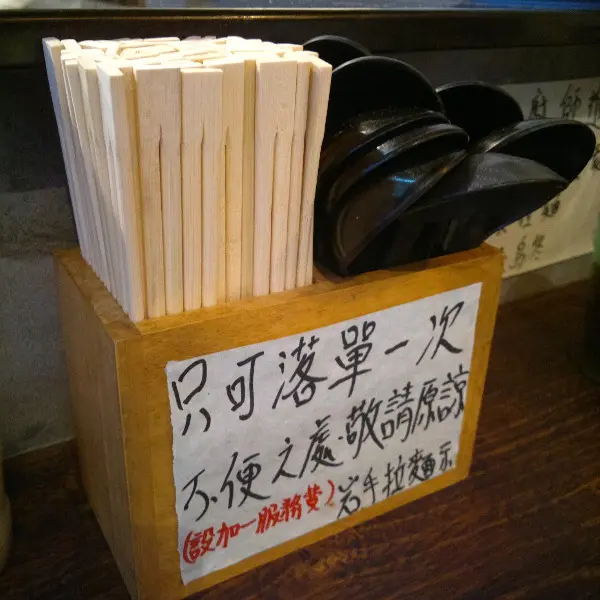 只可落單一次
不便之處敬請原諒
(設加一服務費) 岩手拉麵示
廚師
麵